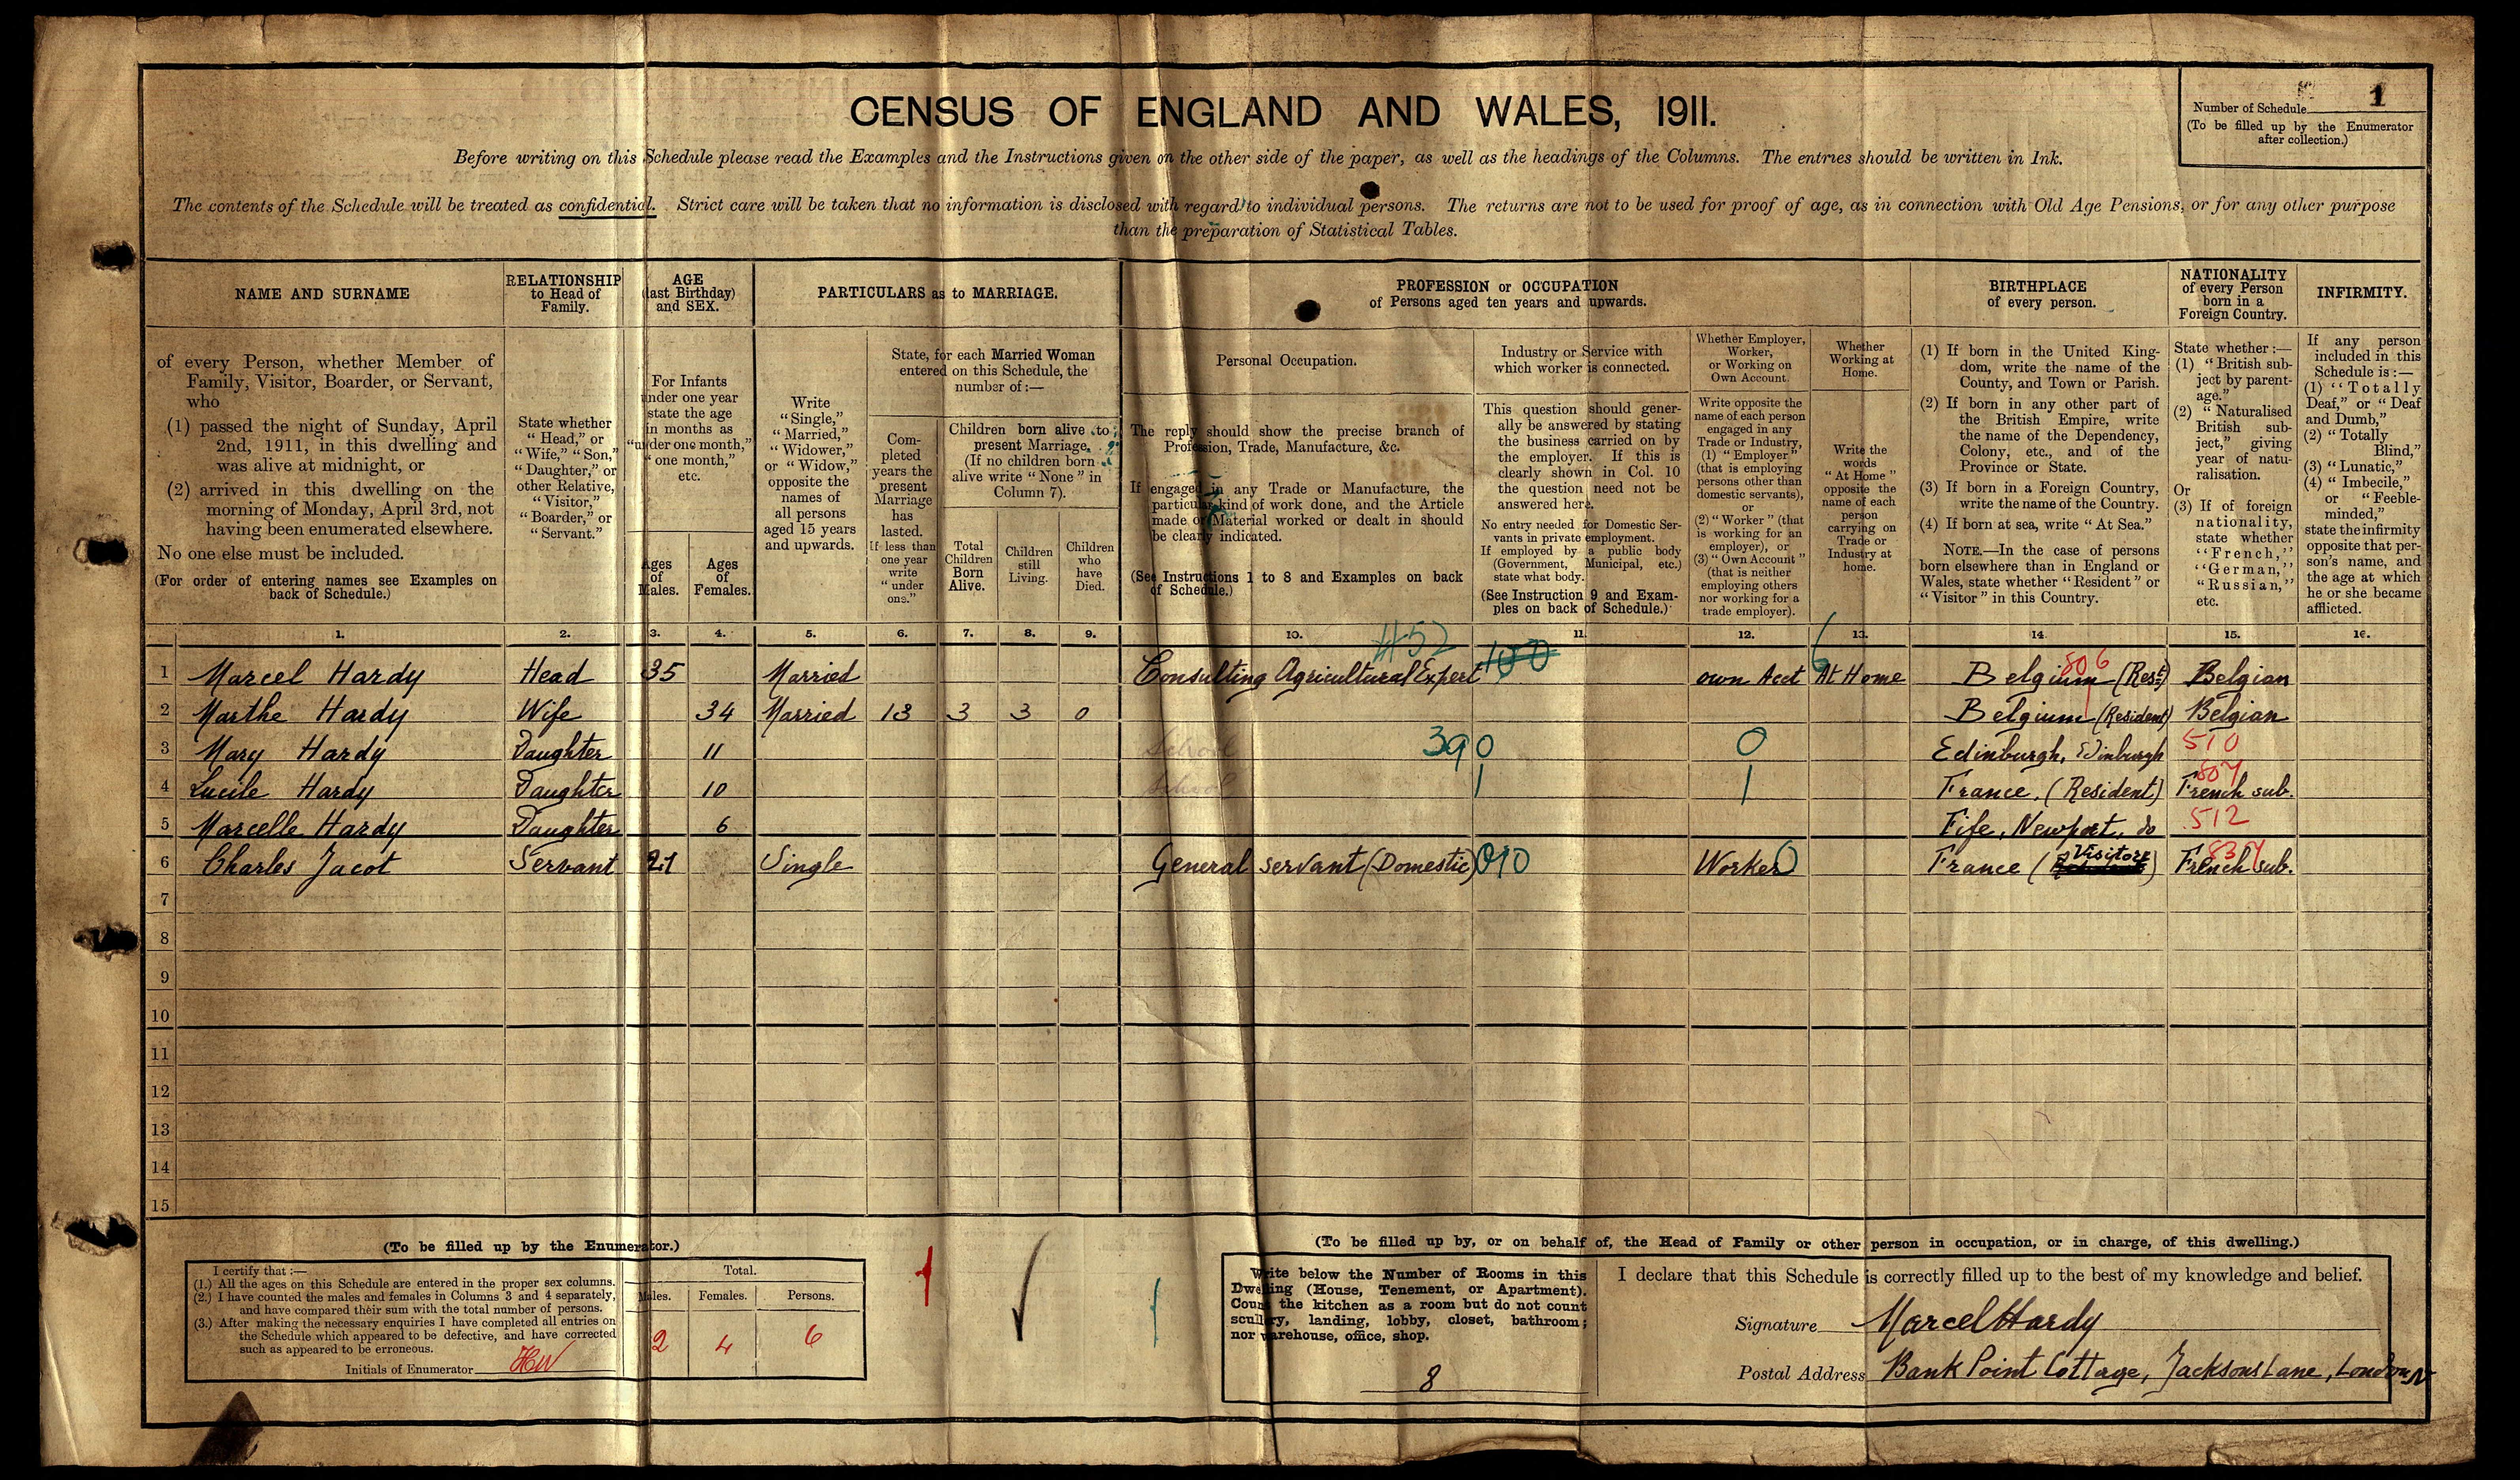 CENSUS OF ENGLAND AND WALES, 1911.
Number of Schedule 1
(To be filled up by the Enumerator
after collection.)
Before writing on this Schedule please read the Examples and the Instructions given on the other side of the paper, as well as the headings of the Columns. The entries should be written in Ink.
The contents of the Schedule will be treated as confidential. Strict care will be taken that no information is disclosed with regard to individual persons. The returns are not to be used for proof of age, as in connection with Old Age Pensions, or for any other purpose
than the preparation of Statistical Tables.
NAME AND SURNAME
of every Person, whether Member of
Family, Visitor, Boarder, or Servant,
who
(1) passed the night of Sunday, April
2nd, 1911, in this dwelling and
was alive at midnight, or
(2) arrived in this dwelling on the
morning of Monday, April 3rd, not
having been enumerated elsewhere.
No one else must be included.
(For order of entering names see Examples on
back of Schedule.)
RELATIONSHIP
to Head of
Family.
State whether
"Head," or
"Wife," "Son,"
"Daughter," or
other Relative,
"Visitor,"
"Boarder," or
"Servant."
AGE
(last Birthday)
and SEX.
For Infants
under one year
state the age
in months as
"under one month,"
"one month,"
etc.
Ages
of
Males.
Ages
of
Females.
PARTICULARS as to MARRIAGE.
Write
"Single,"
"Married,"
"Widower,"
or "Widow,"
opposite the
names of
all persons
aged 15 years
and upwards.
State, for each Married Woman
entered on this Schedule, the
number of:—
Com-
pleted
years the
present
Marriage
has
lasted.
If less than
one year
write
"under
one."
Children born alive to
present Marriage.
(If no children born
alive write "None" in
Column 7).
Total
Children
Born
Alive.
Children
still
Living.
Children
who
have
Died.
PROFESSION or OCCUPATION
of Persons aged ten years and upwards.
Personal Occupation.
The reply should show the precise branch of
Profession, Trade, Manufacture, &c.
If engaged in any Trade or Manufacture, the
particular kind of work done, and the Article
made or Material worked or dealt in should
be clearly indicated.
(See Instructions 1 to 8 and Examples on back
of Schedule.)
Industry or Service with
which worker is connected.
This question should gener-
ally be answered by stating
the business carried on by
the employer. If this is
clearly shown in Col. 10
the question need not be
answered here.
No entry needed for Domestic Ser-
vants in private employment.
If employed by a public body
(Government, Municipal, etc.)
state what body.
(See Instruction 9 and Exam-
ples on back of Schedule.)
Whether Employer,
Worker,
or Working on
Own Account.
Write opposite the
name of each person
engaged in any
Trade or Industry,
(1) "Employer"
(that is employing
persons other than
domestic servants),
or
(2) "Worker" (that
is working for an
employer), or
(3) "Own Account"
(that is neither
employing others
nor working for a
trade employer).
Whether
Working at
Home.
Write the
words
"At Home"
opposite the
name of each
person
carrying on
Trade or
Industry at
home.
BIRTHPLACE
of every person.
(1) If born in the United King-
dom, write the name of the
County, and Town or Parish.
(2) If born in any other part of
the British Empire, write
the name of the Dependency,
Colony, etc., and of the
Province or State.
(3) If born in a Foreign Country,
write the name of the Country.
(4) If born at sea, write "At Sea."
NOTE.—In the case of persons
born elsewhere than in England or
Wales, state whether "Resident" or
"Visitor" in this Country.
NATIONALITY
of every Person
born in a
Foreign Country.
State whether:—
(1) "British sub-
ject by parent-
age."
(2) "Naturalised
British sub-
ject," giving
year of natu-
ralisation.
Or
(3) If of foreign
nationality,
state whether
"French,"
"German,"
"Russian,"
etc.
INFIRMITY.
If any person
included in this
Schedule is:—
(1) "Totally
Deaf," or "Deaf
and Dumb,"
(2) "Totally
Blind,"
(3) "Lunatic,"
(4) "Imbecile,"
or "Feeble-
minded,"
state the infirmity
opposite that per-
son's name, and
the age at which
he or she became
afflicted.
1. 2. 3. 4. 5. 6. 7. 8. 9. 10. 11. 12. 13. 14. 15. 16.
452 6
1 Marcel Hardy Head 35 Married Consulting Agricultural Expert 100 own Acct At Home Belgium (Rest) 806 Belgian
2 Marthe Hardy Wife 34 Married 13 3 3 0 Belgium (Resident) Belgian
3 Mary Hardy Daughter 11 School 390 0 Edinburgh, Edinburgh 510
4 Lucile Hardy Daughter 10 School 1 1 France, (Resident) 807 French sub.
5 Marcelle Hardy Daughter 6 Fife, Newport, do 512
6 Charles Jacot Servant 21 Single General servant (Domestic) 010 Worker 0 France (Visitor) 837 French sub.
7
8
9
10
11
12
13
14
15
(To be filled up by the Enumerator.)
I certify that:—
(1.) All the ages on this Schedule are entered in the proper sex columns.
(2.) I have counted the males and females in Columns 3 and 4 separately,
and have compared their sum with the total number of persons.
(3.) After making the necessary enquiries I have completed all entries on
the Schedule which appeared to be defective, and have corrected
such as appeared to be erroneous.
Initials of Enumerator HW
Total.
Males. Females. Persons.
2 4 6
(To be filled up by, or on behalf of, the Head of Family or other person in occupation, or in charge, of this dwelling.)
Write below the Number of Rooms in this
Dwelling (House, Tenement, or Apartment).
Count the kitchen as a room but do not count
scullery, landing, lobby, closet, bathroom;
nor warehouse, office, shop.
8
I declare that this Schedule is correctly filled up to the best of my knowledge and belief.
Signature Marcel Hardy
Postal Address Bank Point Cottage, Jacksons Lane, London, N